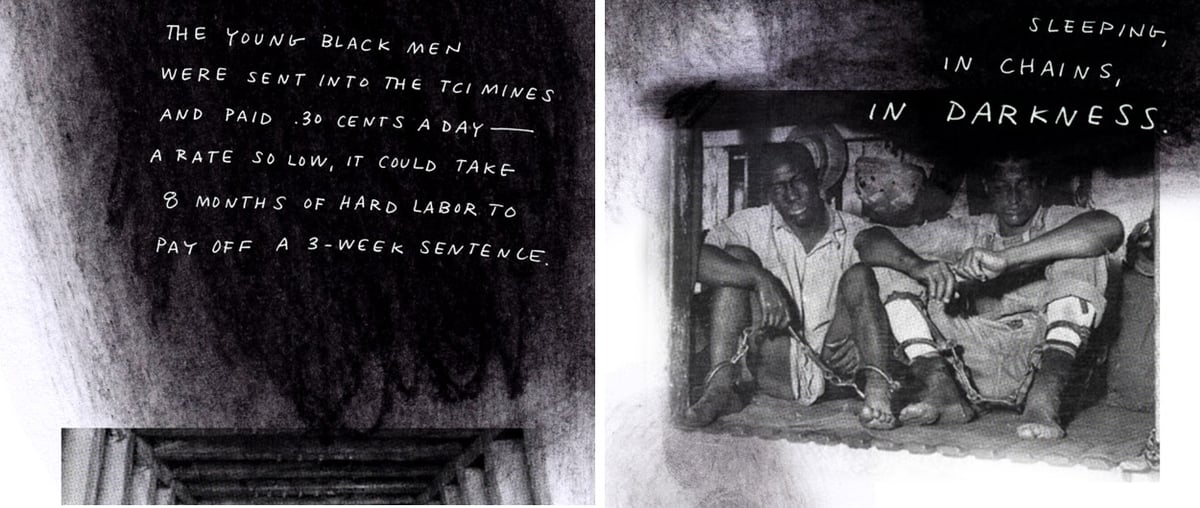 THE YOUNG BLACK MEN
WERE SENT INTO THE TCI MINES
AND PAID .30 CENTS A DAY —
A RATE SO LOW, IT COULD TAKE
8 MONTHS OF HARD LABOR TO
PAY OFF A 3-WEEK SENTENCE.
SLEEPING,
IN CHAINS,
IN DARKNESS.